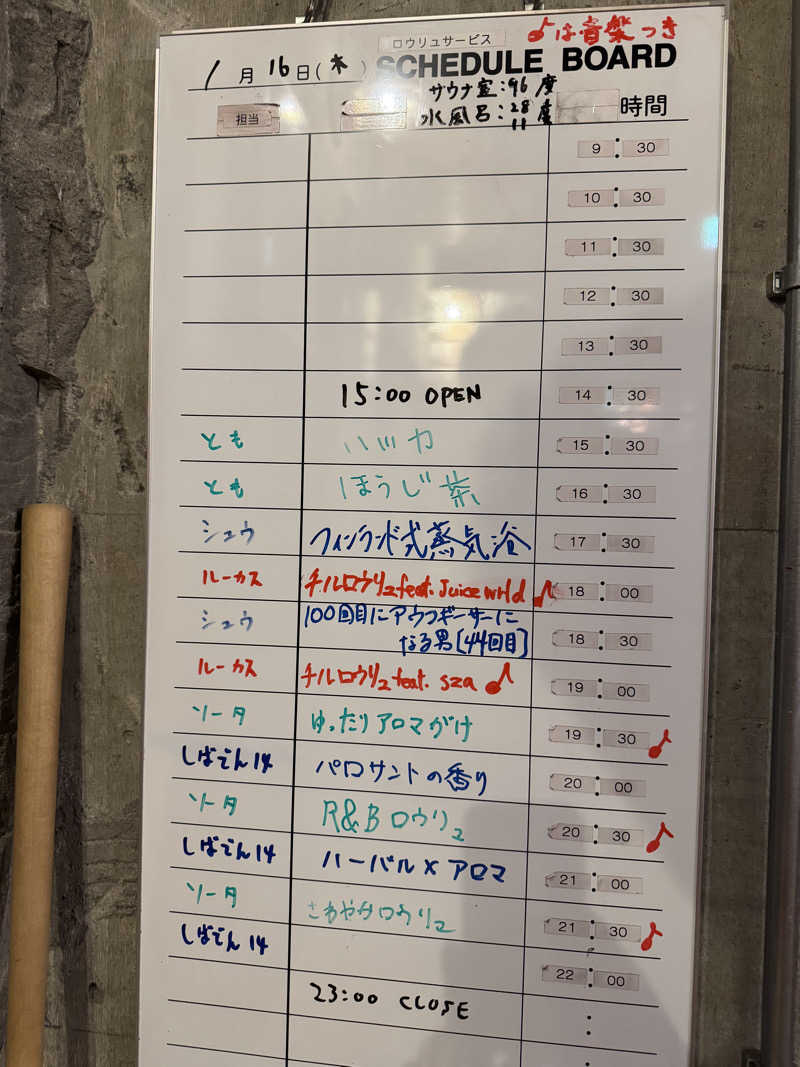 ロウリュサービス ♪は音楽つき
1月16日(木) SCHEDULE BOARD
サウナ室:96度
水風呂:28度
11
担当 時間
9:30
10:30
11:30
12:30
13:30
15:00 OPEN 14:30
とも ハッカ 15:30
とも ほうじ茶 16:30
シュウ フィンランド式蒸気浴 17:30
ルーカス チルロウリュfeat.Juice wrld♪ 18:00
シュウ 100回目にアウフギーサーに 18:30
なる男[44回目]
ルーカス チルロウリュfeat. sza♪ 19:00
ソータ ゆったりアロマがけ 19:30♪
しばてん14 パロサントの香り 20:00
ソータ R&Bロウリュ 20:30♪
しばてん14 ハーバル×アロマ 21:00
ソータ さわやかロウリュ 21:30♪
しばてん14 22:00
23:00 CLOSE :